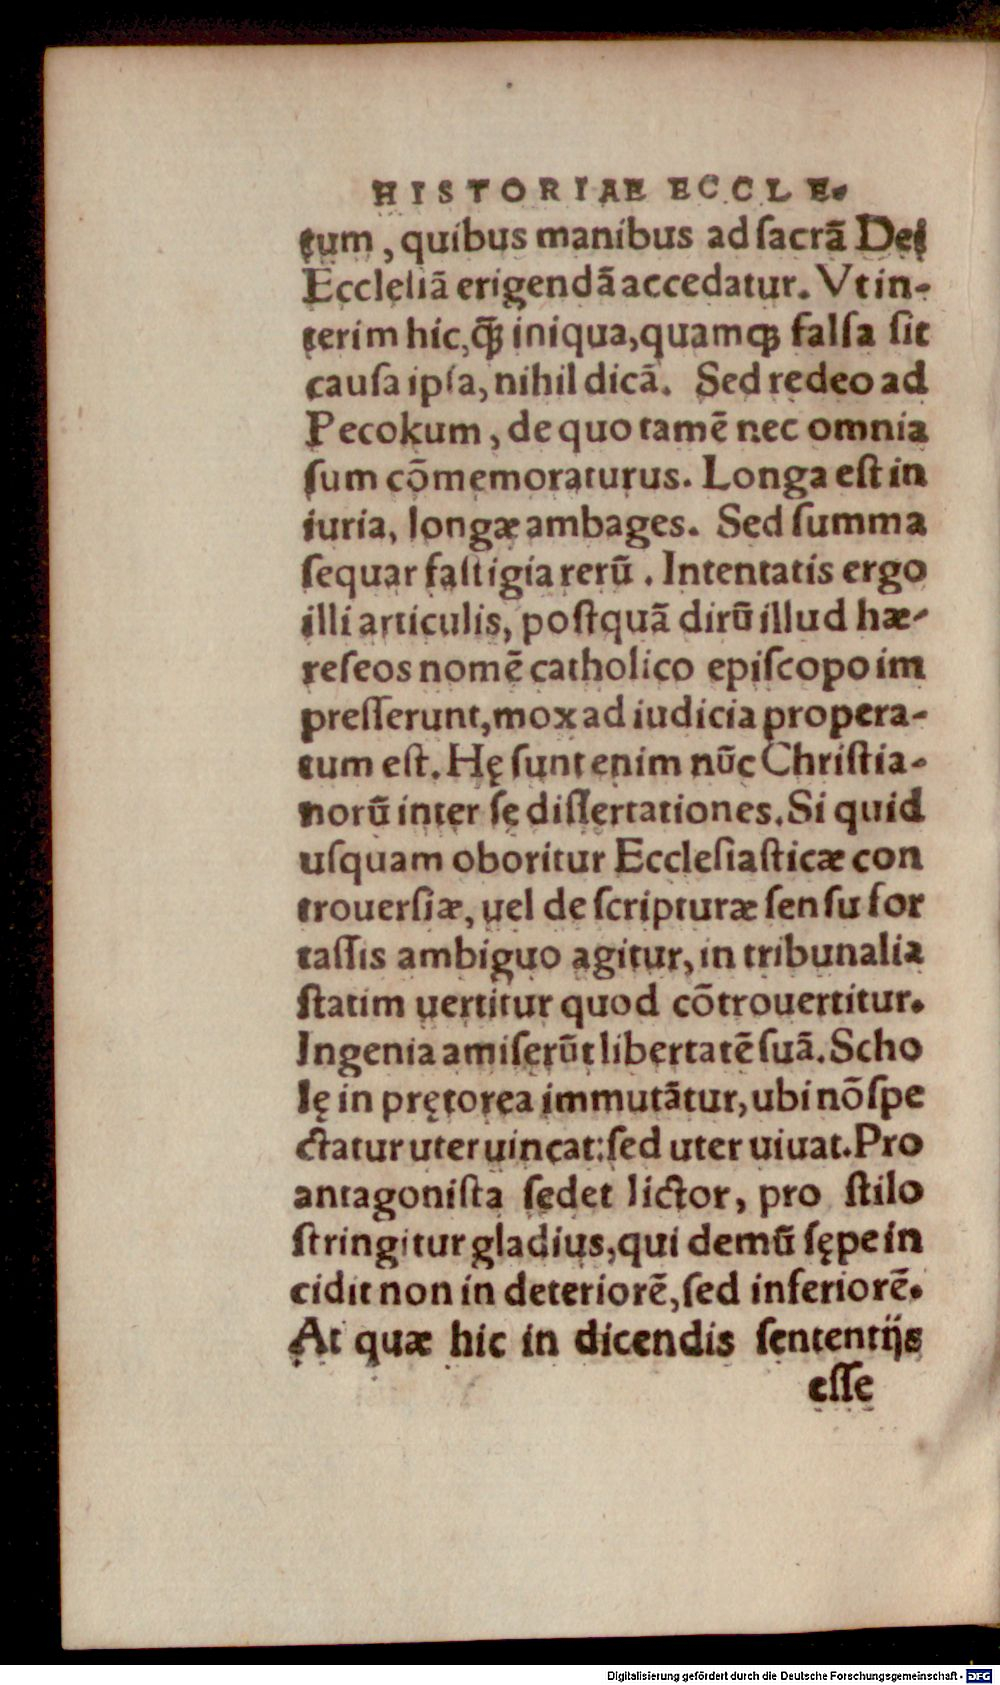 HISTORIAE ECCLE.
tum, quibus manibus ad sacrā Dei
Ecclesiā erigendā accedatur. Vt in-
terim hic, ꝙ̃ iniqua, quamꝙ falsa sit
causa ipsa, nihil dicā. Sed redeo ad
Pecokum, de quo tamē nec omnia
sum cōmemoraturus. Longa est in
iuria, longæ ambages. Sed summa
sequar fastigia rerū. Intentatis ergo
illi articulis, postquā dirū illud hæ-
reseos nomē catholico episcopo im
presserunt, mox ad iudicia propera-
tum est. Hę sunt enim nūc Christia-
norū inter se dissertationes. Si quid
usquam oboritur Ecclesiasticæ con
trouersiæ, uel de scripturæ sensu for
tassis ambiguo agitur, in tribunalia
statim uertitur quod cōtrouertitur.
Ingenia amiserūt libertatē suā. Scho
lę in prętorea immutātur, ubi nō spe
ctatur uter uincat: sed uter uiuat. Pro
antagonista sedet lictor, pro stilo
stringitur gladius, qui demū sępe in
cidit non in deteriorē, sed inferiorē.
At quæ hic in dicendis sententijs
esse
Digitalisierung gefördert durch die Deutsche Forschungsgemeinschaft - DFG